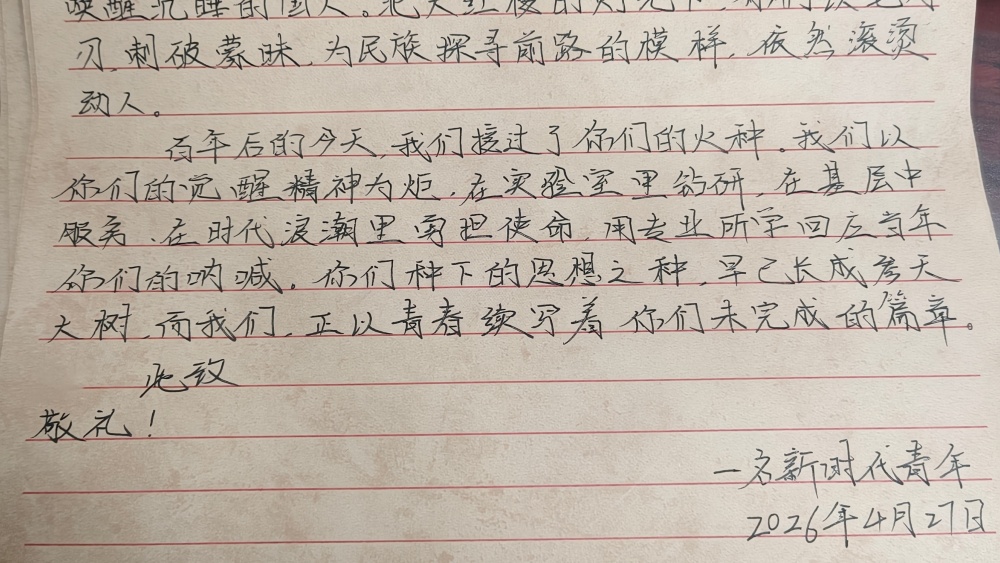 唤醒沉睡的国人。北大红楼的灯光下，你们以笔为
刃，刺破蒙昧，为民族探寻前路的模样，依然滚烫
动人。
百年后的今天，我们接过了你们的火种。我们以
你们的觉醒精神为炬，在实验室里钻研，在基层中
服务，在时代浪潮里勇担使命，用专业所学回应当年
你们的呐喊。你们种下的思想之种，早已长成参天
大树，而我们，正以青春续写着你们未完成的篇章。
此致
敬礼！
一名新时代青年
2026年4月27日